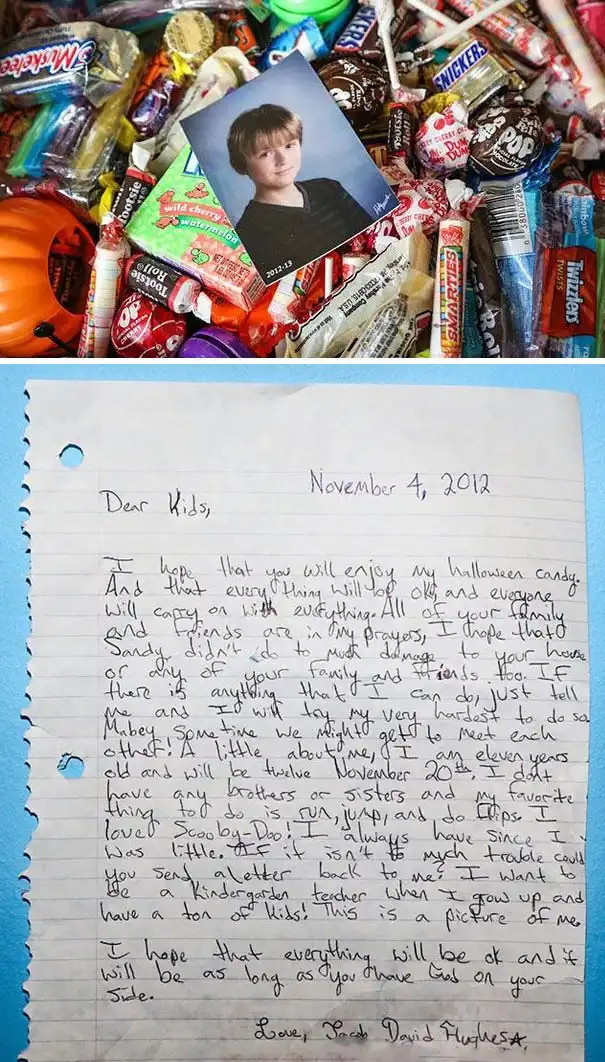 3 Musketeers
SNICKERS
SNICKERS
Tootsie
CHERRY
DUM
DUM
POP
wild cherry
watermelon
2012-13
Tootsie
Roll
POP
SMARTIES
Twizzlers
TWISTS
November 4, 2012
Dear Kids,
I hope that you will enjoy my halloween candy.
And that every thing will be ok and everyone
will carry on with everything. All of your family
and friends are in my prayers, I hope that
Sandy didn't do to much damage to your house
or any of your family and friends too. If
there is anything that I can do, just tell
me and I will try my very hardest to do so.
Mabey some time we might get to meet each
other! A little about me, I am eleven years
old and will be twelve November 20th. I dont
have any brothers or sisters and my favorite
thing to do is run, jump, and do flips. I
love Scooby-Doo! I always have since I
was little. If it isn't to much trouble could
you send a letter back to me? I want to
be a Kindergarden teacher when I grow up and
have a ton of kids! This is a picture of me.
I hope that everything will be ok and it
will be as long as you have God on your
side.
Love, Jacob David Hughes